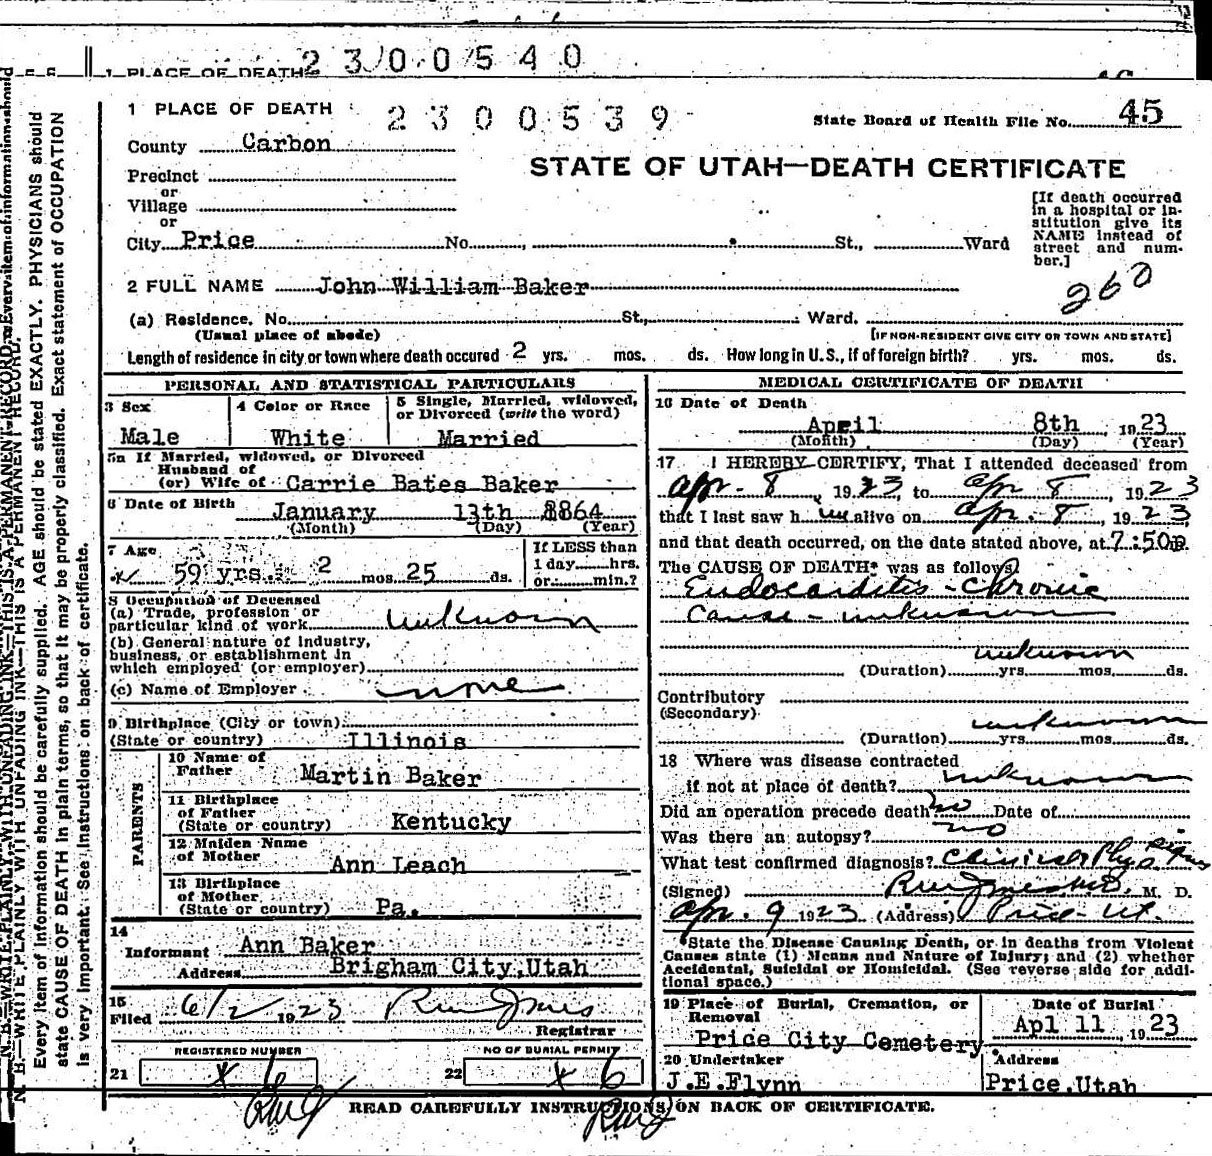 2300540
1 PLACE OF DEATH
1 PLACE OF DEATH
2300539
State Board of Health File No. 45
County Carbon
STATE OF UTAH—DEATH CERTIFICATE
Precinct
or
Village
or
City Price No. , St., Ward
[If death occurred
in a hospital or in-
stitution give its
NAME instead of
street and num-
ber.]
2 FULL NAME John William Baker
260
(a) Residence, No. St., Ward.
(Usual place of abode) [IF NON-RESIDENT GIVE CITY OR TOWN AND STATE]
Length of residence in city or town where death occured 2 yrs. mos. ds. How long in U.S., if of foreign birth? yrs. mos. ds.
PERSONAL AND STATISTICAL PARTICULARS
3 Sex
Male
4 Color or Race
White
5 Single, Married, widowed,
or Divorced (write the word)
Married
5a If Married, widowed, or Divorced
Husband of
(or) Wife of Carrie Bates Baker
6 Date of Birth January 13th 1864
(Month) (Day) (Year)
7 Age
59 yrs. 2 mos. 25 ds.
If LESS than
1 day hrs.
or min.?
8 Occupation of Deceased
(a) Trade, profession or
particular kind of work unknown
(b) General nature of industry,
business, or establishment in
which employed (or employer)
(c) Name of Employer none
9 Birthplace (City or town)
(State or country) Illinois
PARENTS
10 Name of
Father Martin Baker
11 Birthplace
of Father
(State or country) Kentucky
12 Maiden Name
of Mother Ann Leach
13 Birthplace
of Mother
(State or country) Pa.
14
Informant Ann Baker
Address Brigham City, Utah
15
Filed 6/2 1923
Registrar
REGISTERED NUMBER
21 x 6
NO OF BURIAL PERMIT
22 x 6
MEDICAL CERTIFICATE OF DEATH
16 Date of Death
April 8th , 1923
(Month) (Day) (Year)
17 I HEREBY CERTIFY, That I attended deceased from
Apr - 8 , 1923, to Apr 8 , 1923
that I last saw h im alive on Apr. 8 , 1923,
and that death occurred, on the date stated above, at 7:50 p
The CAUSE OF DEATH* was as follows
Endocarditis - Chronic
Cause - unknown
unknown
(Duration) yrs. mos. ds.
Contributory
(Secondary)
unknown
(Duration) yrs. mos. ds.
18 Where was disease contracted
if not at place of death? unknown
Did an operation precede death? no Date of
Was there an autopsy? no
What test confirmed diagnosis? Clinical & Phys. signs
(Signed) M. D.
Apr. 9 1923 (Address) Price - Ut.
*State the Disease Causing Death, or in deaths from Violent
Causes state (1) Means and Nature of Injury; and (2) whether
Accidental, Suicidal or Homicidal. (See reverse side for addi-
tional space.)
19 Place of Burial, Cremation, or
Removal
Price City Cemetery
Date of Burial
Apl 11 , 1923
20 Undertaker
J.E.Flynn
Address
Price, Utah
READ CAREFULLY INSTRUCTIONS ON BACK OF CERTIFICATE.
N. B.—WRITE PLAINLY WITH UNFADING INK—THIS IS A PERMANENT RECORD.
Every item of information should be carefully supplied. AGE should be stated EXACTLY. PHYSICIANS should
state CAUSE OF DEATH in plain terms, so that it may be properly classified. Exact statement of OCCUPATION
is very important. See instructions on back of certificate.